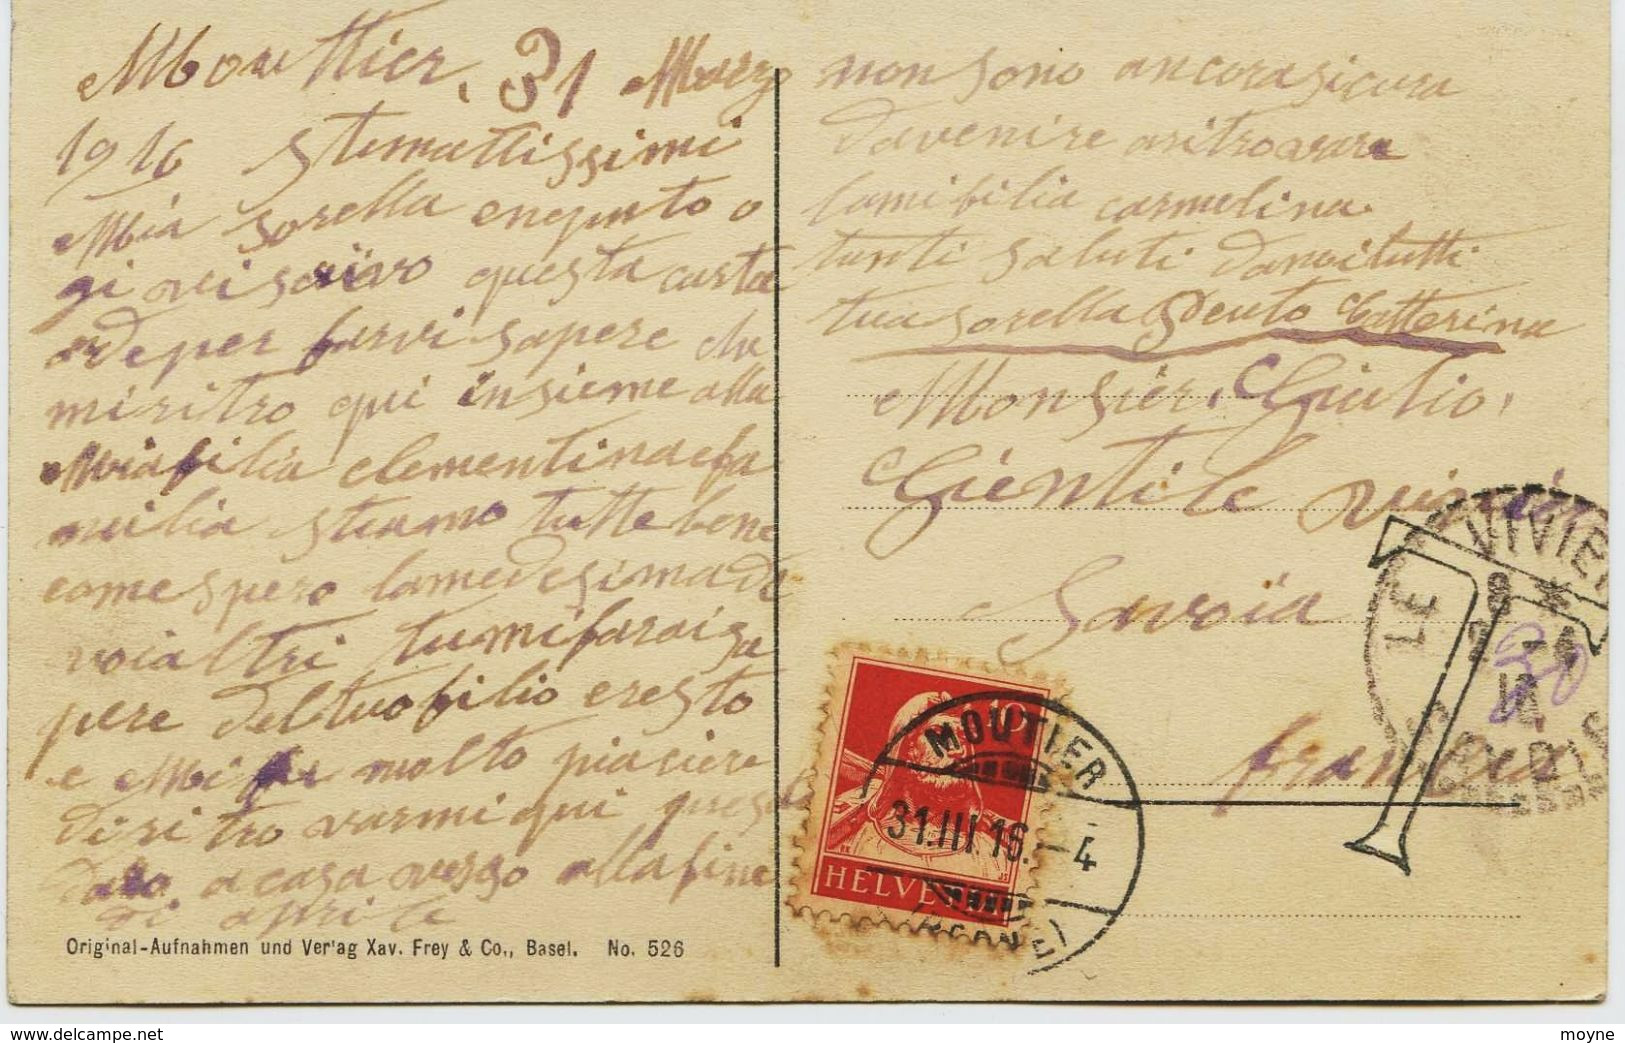 Mouttier, 31 Marzo
1916 Stemattissimi
Mia sorella enepute o
gi vi scrivo questa carta
ade per farvi sapere che
miritro qui insieme alla
Mia filia clementina efa
milia stiamo tutte bene
come spero lamedesima di
voialtri tumifaraisa
pere deltuo filio eresto
e molto piaciere
di ritro varmi qui
a casa verso allafine
di aprile
non sono ancorasicura
davenire aritrovare
lamifilia carmelina
tanti saluti davoitutti
tua sorella Catterina
Monsier, Giulio,
Gientile
Savoia
francia
T
30
LE VIVIER
10
HELVETIA
MOUTIER
31.III.16. - 4
(BERNE)
Original-Aufnahmen und Verlag Xav. Frey & Co., Basel. No. 526
moyne